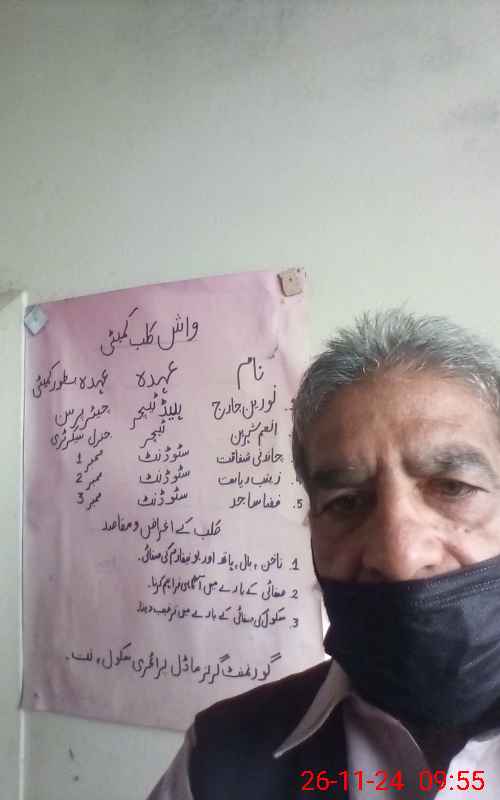 واش کلب کمیٹی
نام عہدہ عہدہ بطور کمیٹی
نورین جارج ہیڈ ٹیچر چیئر پرسن
انعم شہزین ٹیچر جنرل سیکرٹری
چاندنی شفاقت سٹوڈنٹ ممبر 1
4. زینب ریاست سٹوڈنٹ ممبر 2
5. فضا ساجد سٹوڈنٹ ممبر 3
کلب کے اغراض و مقاصد
1. ناخن ، بال ، ہاتھ اور یونیفارم کی صفائی۔
2 صفائی کے بارے میں آگاہی فراہم کرنا۔
3 سکول کی صفائی کے بارے میں ترغیب دینا۔
گورنمنٹ گرلز ماڈل پرائمری سکول
26-11-24 09:55